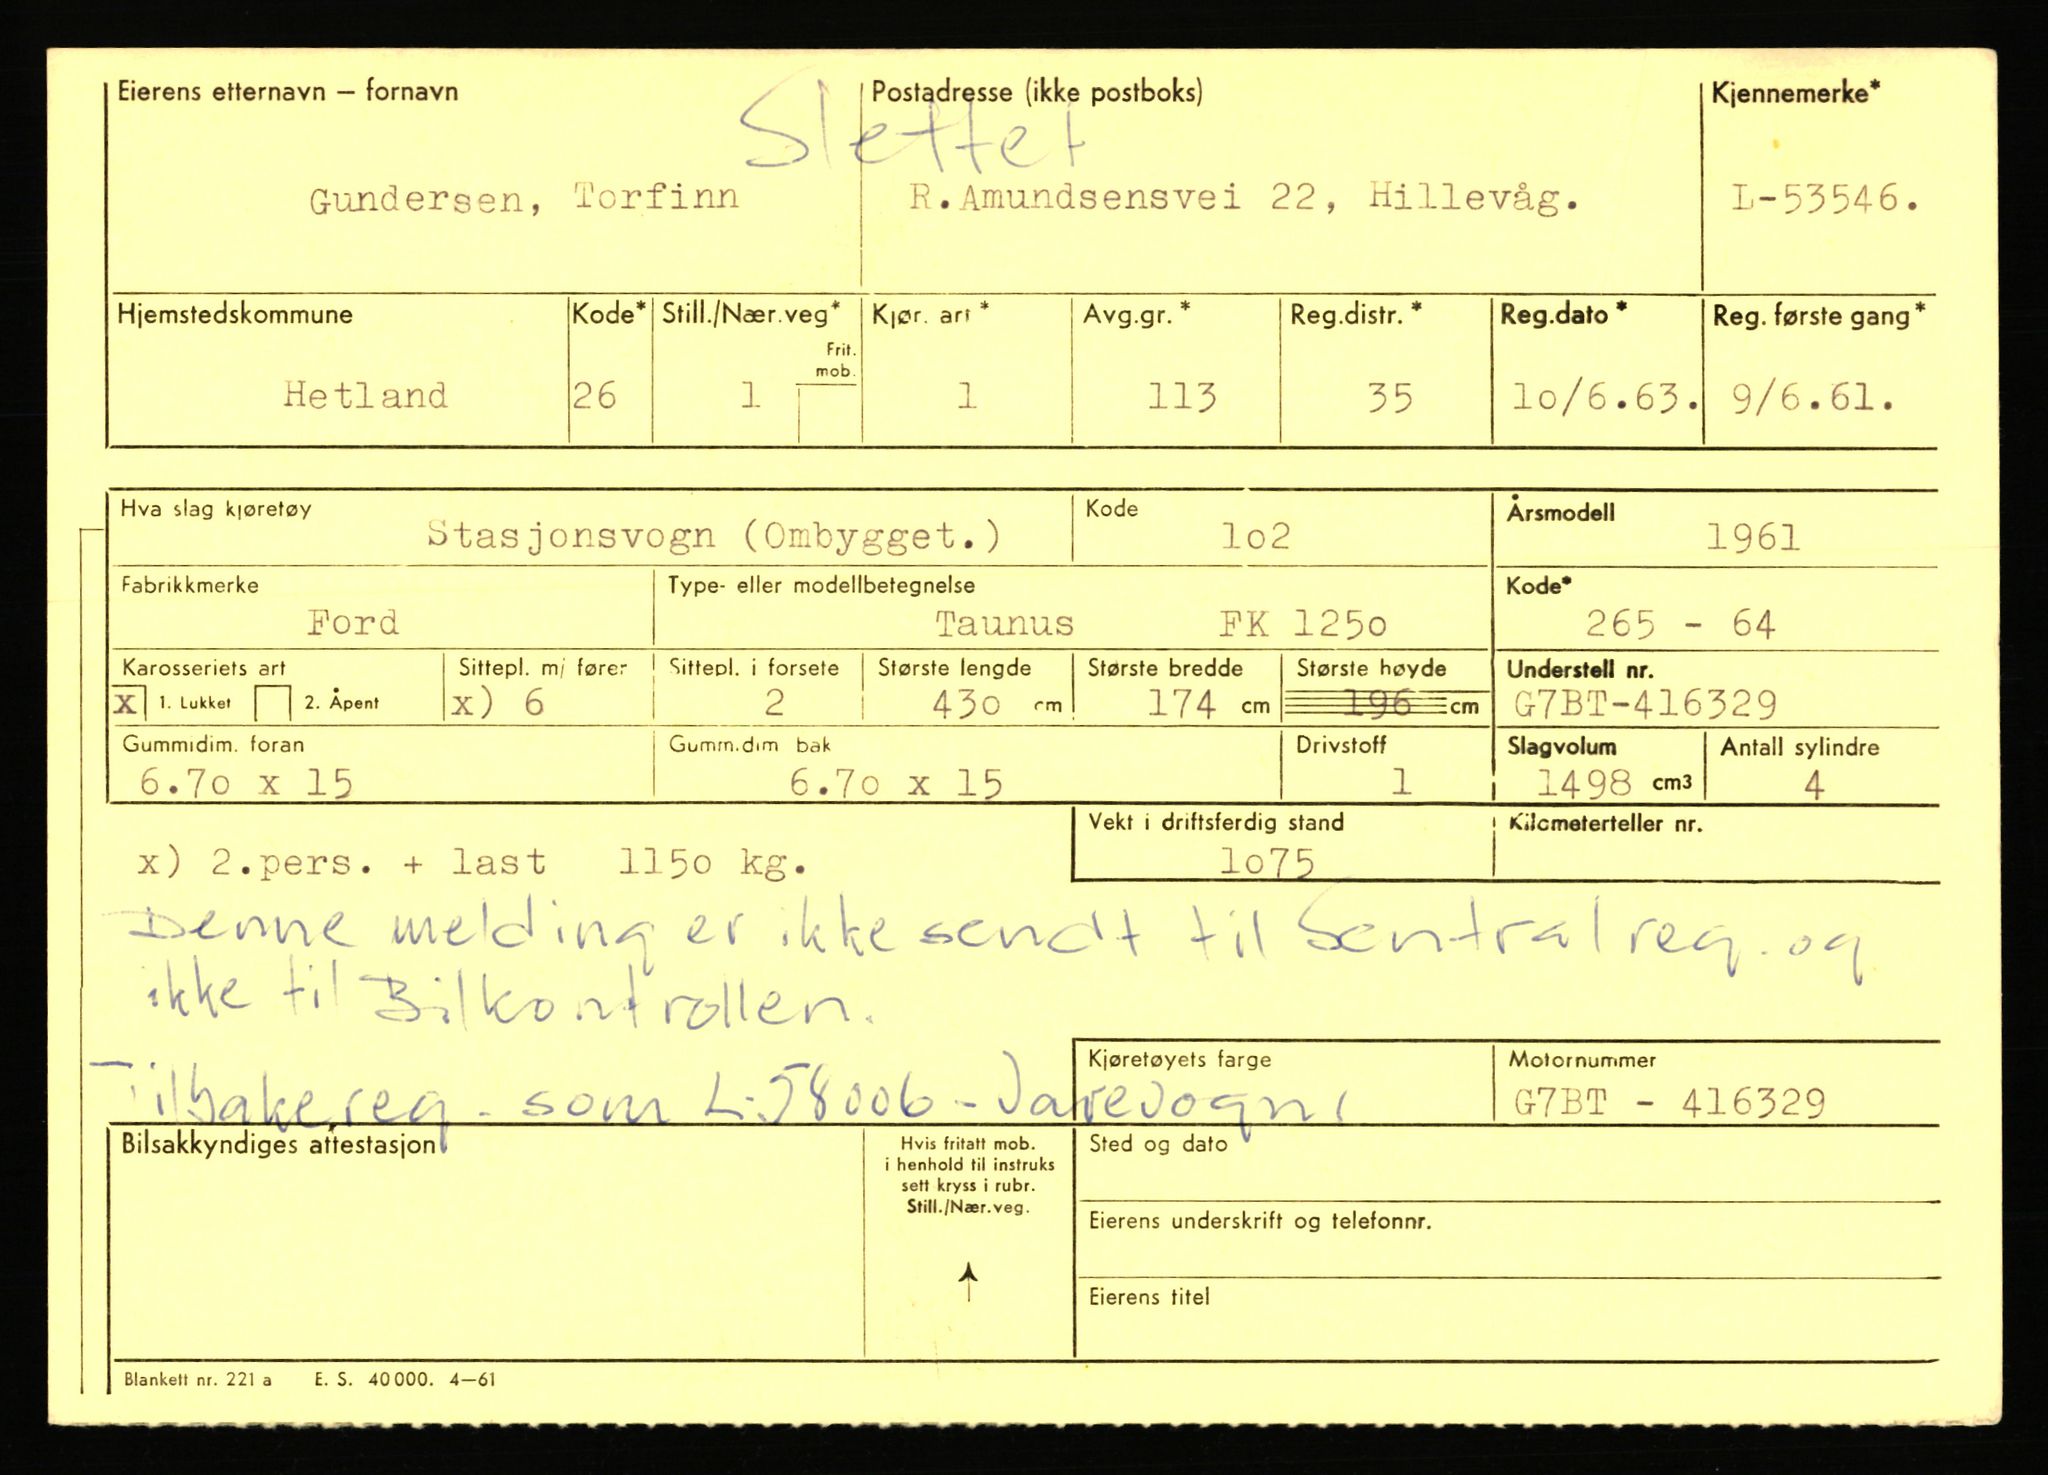 Eierens etternavn – fornavn Postadresse (ikke postboks) Kjennemerke*
Slettet
Gundersen, Torfinn R.Amundsensvei 22, Hillevåg. L-53546.
Hjemstedskommune Kode* Still./Nær.veg* Kjør. art * Avg.gr. * Reg.distr. * Reg.dato * Reg. første gang *
Frit.
mob.
Hetland 26 1 1 113 35 lo/6.63. 9/6.61.
Hva slag kjøretøy Kode Årsmodell
Stasjonsvogn (Ombygget.) lo2 1961
Fabrikkmerke Type- eller modellbetegnelse Kode*
Ford Taunus FK 125o 265 - 64
Karosseriets art Sittepl. m/ fører Sittepl. i forsete Største lengde Største bredde Største høyde Understell nr.
x 1. Lukket 2. Åpent x) 6 2 43o cm 174 cm 196 cm G7BT-416329
Gummidim. foran Gummidim bak Drivstoff Slagvolum Antall sylindre
6.7o x 15 6.7o x 15 1 1498 cm3 4
Vekt i driftsferdig stand Kilometerteller nr.
x) 2.pers. + last 115o kg. lo75
Denne melding er ikke sendt til Sentralreg. og
ikke til Bilkontrollen.
Kjøretøyets farge Motornummer
Tilbakereg. som L-58006 - Varevogn, G7BT - 416329
Bilsakkyndiges attestasjon Hvis fritatt mob. Sted og dato
i henhold til instruks
sett kryss i rubr.
Still./Nær.veg.
Eierens underskrift og telefonnr.
Eierens titel
Blankett nr. 221 a E. S. 40 000. 4—61